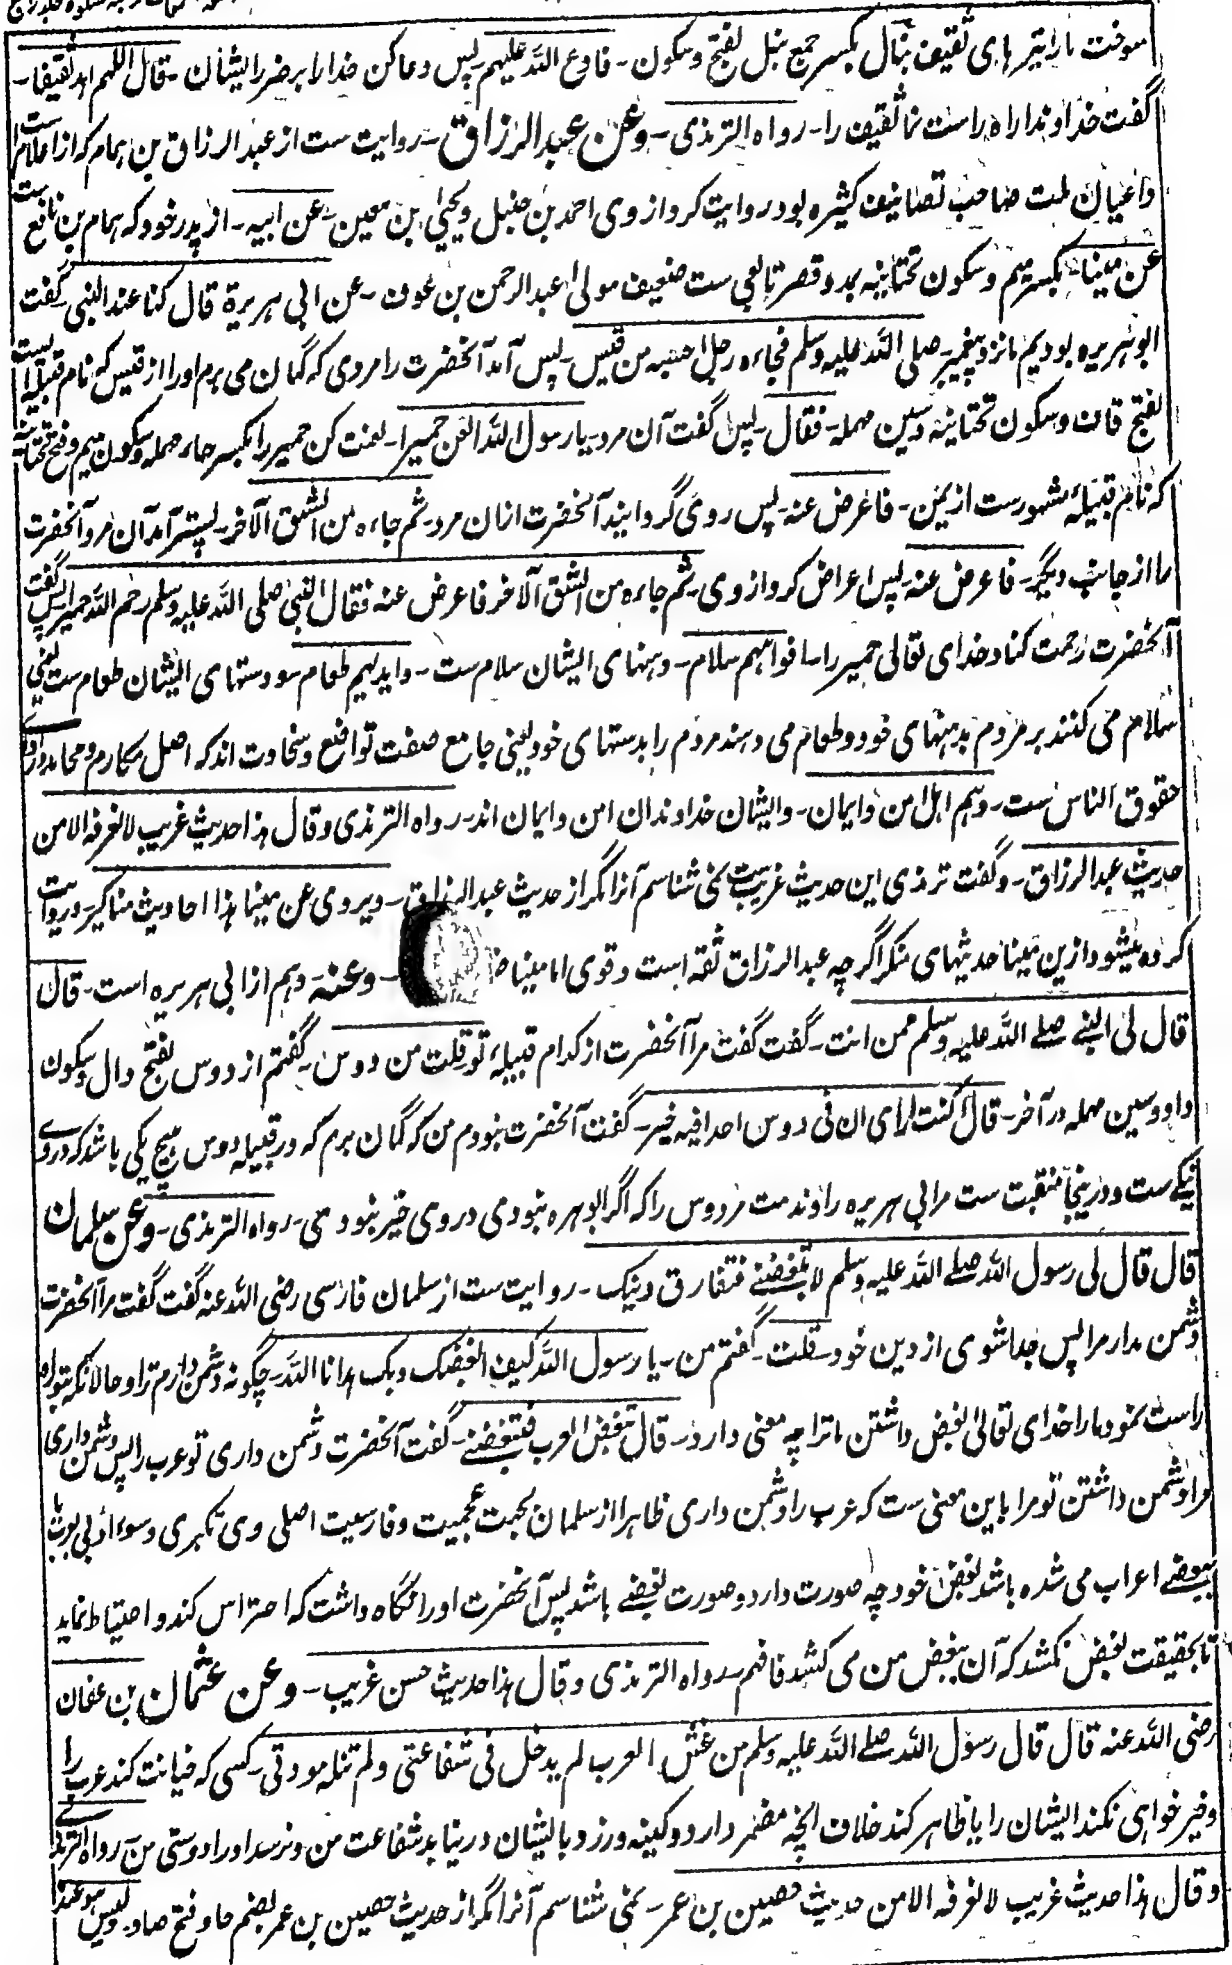 سوخت مارا تیرهای ثقیف نبال بکسر جمع نبل بفتح وسکون۔ فادع الله علیهم۔ پس دعا کن خدا را بر ضرر ایشان۔ قال اللهم اهد ثقیفا۔
گفت خداوندا راه راست نما ثقیف را۔ رواه الترمذی۔ وعن عبد الرزاق۔ روایت ست از عبد الرزاق بن همام که از اعلام ست
واعیان ملت صاحب تصانیف کثیره بود روایت کرد از وی احمد بن حنبل ویحییٰ ابن معین۔ عن ابیه۔ از پدر خود که همام بن نافع ست
عن میناء بکسر میم وسکون تحتانیه بمد وقصر تابعی ست ضعیف مولیٰ عبد الرحمن بن عوف۔ عن ابی هریرة قال کنا عند النبی گفت
ابوهریره بودیم ما نزد پیغمبر صلی الله علیه وسلم فجاءه رجل احسبه من قیس۔ پس آمد آنحضرت را مردی که گمان می برم او را از قیس که نام قبیله ایست
بفتح قاف وسکون تحتانیه وسین مهمله۔ فقال۔ پس گفت آن مرد۔ یا رسول الله العن حمیرا۔ لعنت کن حمیر را بکسر حاء مهمله وسکون میم وفتح تحتانیه
که نام قبیلهٔ مشهورست از یمن۔ فاعرض عنه۔ پس روی گردانید آنحضرت ازان مرد۔ ثم جاءه من الشق الآخر۔ پستر آمد آن مرد آنحضرت
را از جانب دیگر۔ فاعرض عنه۔ پس اعراض کرد از وی۔ ثم جاءه من الشق الآخر فاعرض عنه فقال النبی صلی الله علیه وسلم رحم الله حمیرا پس گفت
آنحضرت رحمت کناد خدای تعالی حمیر را۔ افواههم سلام۔ دهنهای ایشان سلام ست۔ وایدیهم طعام۔ ودستهای ایشان طعام ست یعنی
سلام می کنند بر مردم بدهنهای خود وطعام می دهند مردم را بدستهای خود یعنی جامع صفت تواضع وسخاوت اند که اصل مکارم ومحامد وادای
حقوق الناس ست۔ وهم اهل امن وایمان۔ وایشان خداوندان امن وایمان اند۔ رواه الترمذی وقال هذا حدیث غریب لا نعرفه الا من
حدیث عبد الرزاق۔ وگفت ترمذی این حدیث غریب ست نمی شناسم آنرا مگر از حدیث عبد الرزاق۔ ویروی عن مینا هذا احادیث مناکیر۔ وروایت
کرده میشود ازین مینا حدیثهای منکر اگر چه عبد الرزاق ثقه است وقوی اما مینا ۔ وعنه۔ وهم از ابی هریره است۔ قال
قال لی النبی صلے الله علیه وسلم ممن انت۔ گفت گفت مرا آنحضرت از کدام قبیلهٔ تو۔ قلت من دوس۔ گفتم از دوس بفتح دال وسکون
واو وسین مهمله در آخر۔ قال ما کنت اری ان فی دوس احدا فیه خیر۔ گفت آنحضرت نبودم من که گمان برم که در قبیله دوس هیچ یکی باشد که در وی
نیکی ست ودرینجا منقبت ست مر ابی هریره را ومذمت مر دوس را که اگر ابوهریره نبودی در وی خیر نبودی۔ رواه الترمذی۔ وعن سلمان
قال قال لی رسول الله صلے الله علیه وسلم لا تبغضنی فتفارق دینک۔ روایت ست از سلمان فارسی رضی الله عنه گفت گفت مرا آنحضرت
دشمن مدار مرا پس جدا شوی از دین خود۔ قلت۔ گفتم من۔ یا رسول الله کیف ابغضک وبک هدانا الله۔ چگونه دشمن دارم ترا وحالانکه بتو راه
راست نمود مارا خدای تعالیٰ بغض داشتن ما ترا چه معنی دارد۔ قال تبغض العرب فتبغضنی۔ گفت آنحضرت دشمن داری تو عرب را پس دشمن داری
مرا دشمن داشتن تو مرا باین معنی ست که عرب را دشمن داری ظاهرا از سلمان بجهت عجمیت وفارسیت اصلی وی تکبری وسوء ادبی بعرب یا
ببعضی اعراب می شده باشد بغض خود چه صورت دارد وصورت بغضی باشد پس آنحضرت او را نگاه داشت که احتراس کند واحتیاط نماید
تا بحقیقت بغض نکشد که آن ببغض من می کشد فافهم۔ رواه الترمذی وقال هذا حدیث حسن غریب۔ وعن عثمان بن عفان
رضی الله عنه قال قال رسول الله صلے الله علیه وسلم من غش العرب لم یدخل فی شفاعتی ولم تنله مودتی۔ کسی که خیانت کند عرب را
وخیر خواهی نکند ایشان را یا ظاهر کند خلاف آنچه مضمر دارد وکینه ورزد بایشان در نیاید در شفاعت من ونرسد او را دوستی من۔ رواه الترمذی
وقال هذا حدیث غریب لا نعرفه الا من حدیث حصین بن عمر۔ نمی شناسم آنرا مگر از حدیث حصین بن عمر بضم حا وفتح صاد۔ ولیس هو عند